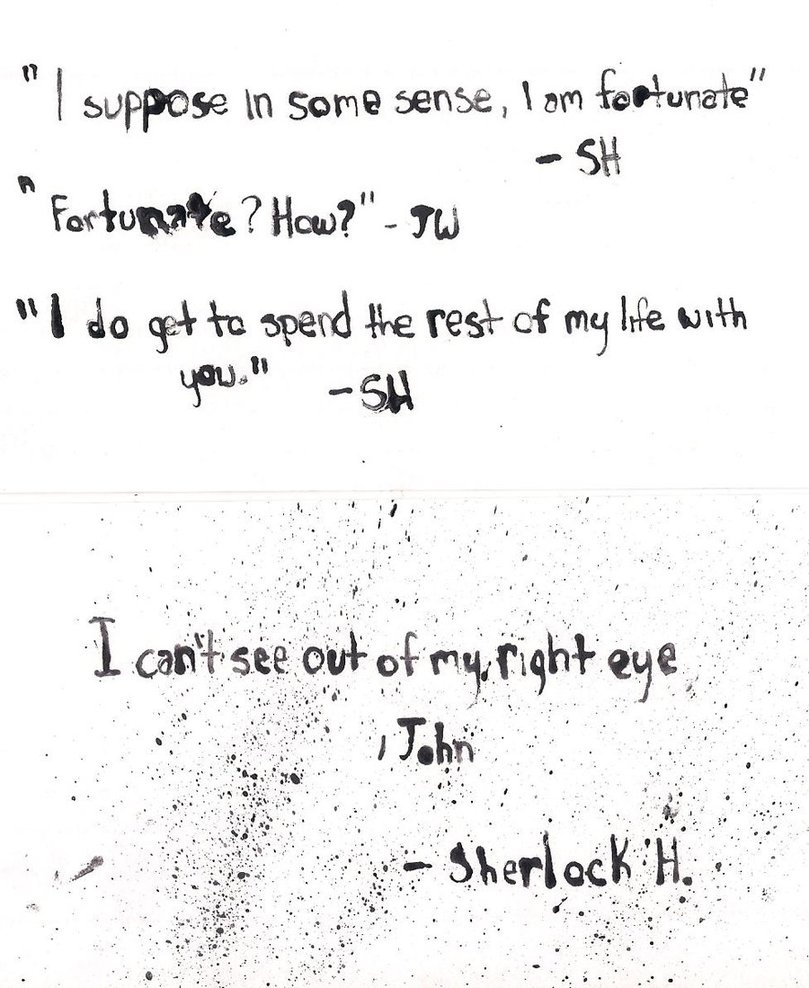 "I suppose in some sense, I am fortunate"
- SH
"Fortunate? How?" - JW
"I do get to spend the rest of my life with
you." - SH
I can't see out of my right eye
, John
- Sherlock H.